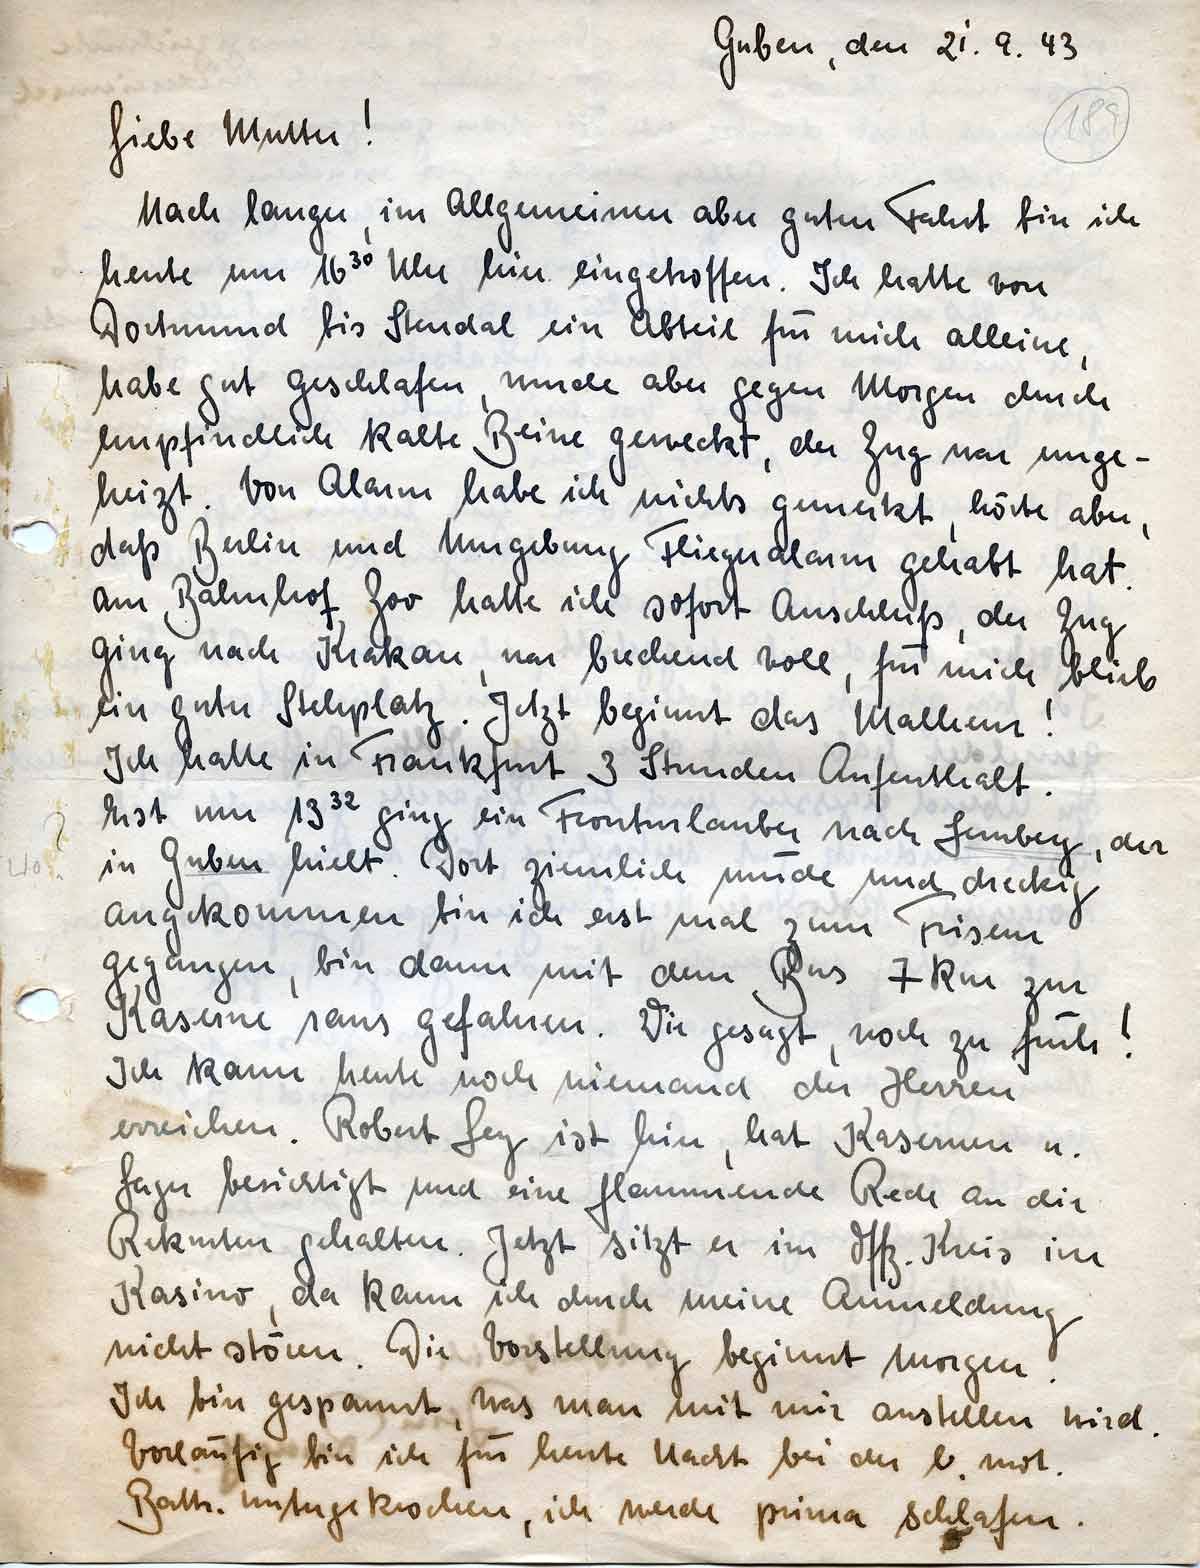 Guben, den 21. 9. 43
189
Liebe Mutter!
Nach langer, im Allgemeinen aber guten Fahrt bin ich
heute um 16³⁰ Uhr hier eingetroffen. Ich hatte von
Dortmund bis Stendal ein Abteil für mich alleine,
habe gut geschlafen, wurde aber gegen Morgen durch
empfindlich kalte Beine geweckt, der Zug war unge-
heizt. Von Alarm habe ich nichts gemerkt, hörte aber,
daß Berlin und Umgebung Fliegeralarm gehabt hat.
Am Bahnhof Zoo hatte ich sofort Anschluß, der Zug
ging nach Krakau, war brechend voll, für mich blieb
ein guter Stehplatz. Jetzt beginnt das Malheur!
Ich hatte in Frankfurt 3 Stunden Aufenthalt.
Erst um 13³² ging ein Fronturlauber nach Lemberg, der
in Guben hielt. Dort ziemlich müde und dreckig
angekommen bin ich erst mal zum Friseur
gegangen, bin dann mit dem Bus 7 km zur
Kaserne raus gefahren. Wie gesagt, noch zu früh!
Ich kann heute noch niemand der Herren
erreichen. Robert Ley ist hier, hat Kasernen u.
Lager besichtigt und eine flammende Rede an die
Rekruten gehalten. Jetzt sitzt er im Offz. Kreis im
Kasino, da kann ich durch meine Anmeldung
nicht stören. Die Vorstellung beginnt morgen.
Ich bin gespannt, was man mit mir anstellen wird.
Vorläufig bin ich für heute Nacht bei der l. mot.
Battr. untergekrochen, ich werde prima schlafen.